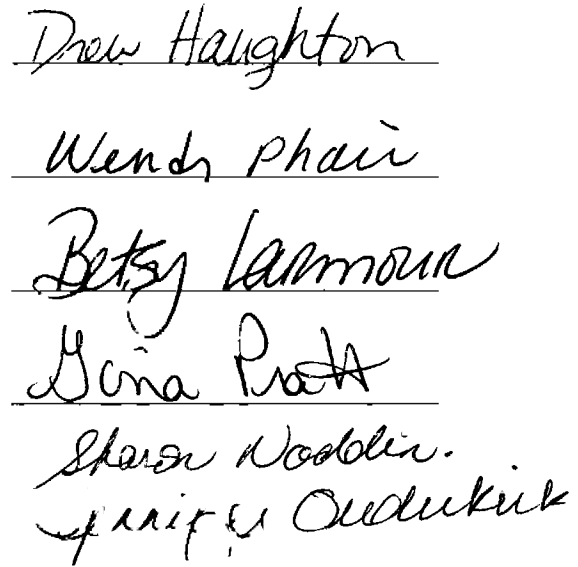 Drew Haughton
Wendy Phair
Betsy Larmour
Gina Pratt
Sharon Noddin.
Jennifer Ouderkirk